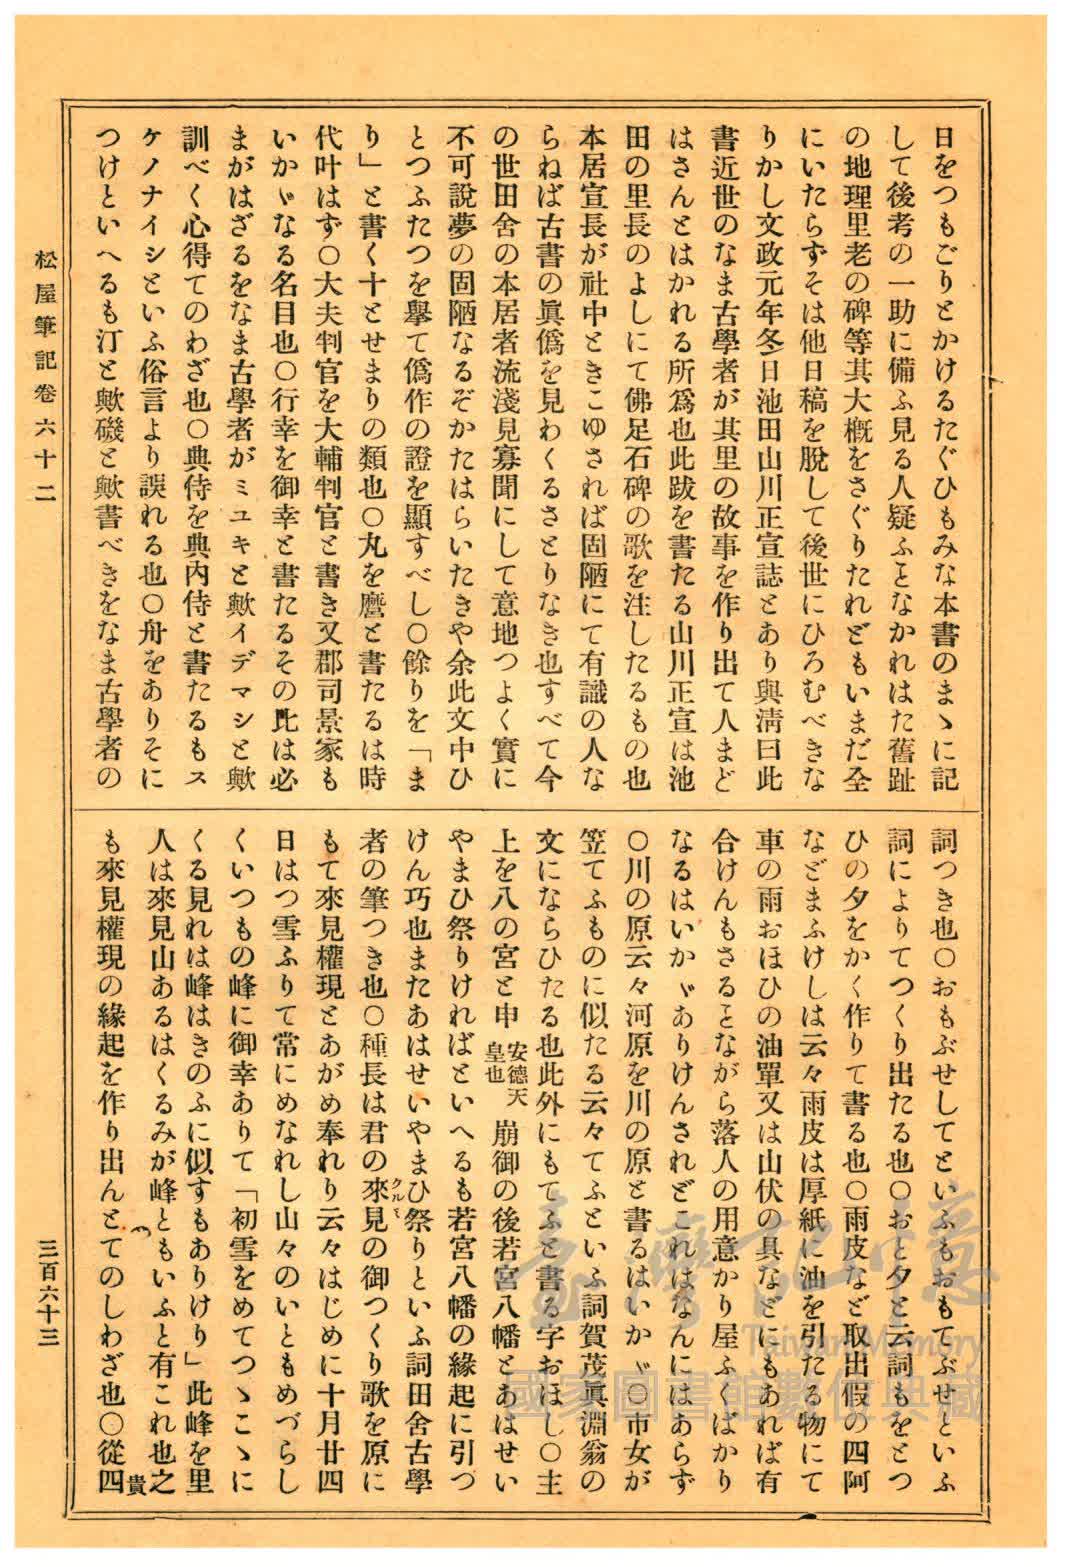 日をつもごりとかけるたぐひもみな本書のまゝに記
して後考の一助に備ふ見る人疑ふヿなかれはた舊趾
の地理里老の碑等其大概をさぐりたれどもいまだ全
にいたらずそは他日稿を脱して後世にひろむべきな
りかし文政元年冬日池田山川正宣誌とあり與清曰此
書近世のなま古學者が其里の故事を作り出て人まど
はさんとはかれる所爲也此跋を書たる山川正宣は池
田の里長のよしにて佛足石碑の歌を注したるもの也
本居宣長が社中ときこゆされば固陋にて有識の人な
らねば古書の眞僞を見わくるさとりなき也すべて今
の世田舍の本居者流淺見寡聞にして意地つよく實に
不可說夢の固陋なるぞかたはらいたきや余此文中ひ
とつふたつを擧て僞作の證を顯すべし〇餘りを「ま
り」と書く十とせまりの類也〇丸を麿と書たるは時
代叶はず〇大夫判官を大輔判官と書き又郡司景家も
いかゞなる名目也〇行幸を御幸と書たるその比は必
まがはざるをなま古學者がミユキと歟イデマシと歟
訓べく心得てのわざ也〇典侍を典內侍と書たるもス
ケノナイシといふ俗言より誤れる也〇舟をありそに
つけといへるも汀と歟磯と歟書べきをなま古學者の
詞つき也〇おもぶせしてといふもおもてぶせといふ
詞によりてつくり出たる也〇おと夕と云詞もをとつ
ひの夕をかく作りて書る也〇雨皮など取出假の四阿
などまふけしは云々雨皮は厚紙に油を引たる物にて
車の雨おほひの油單又は山伏の具などにもあれば有
合けんもさるヿながら落人の用意かり屋ふくばかり
なるはいかゞありけんされどこれはなんにはあらず
〇川の原云々河原を川の原と書るはいかゞ〇市女が
笠てふものに似たる云々てふといふ詞賀茂眞淵翁の
文にならひたる也此外にもてふと書る字おほし〇主
上を八の宮と申安德天皇也崩御の後若宮八幡とあはせい
やまひ祭りければといへるも若宮八幡の緣起に引づ
けん巧也またあはせいやまひ祭りといふ詞田舍古學
者の筆つき也〇種長は君の來見クルミの御つくり歌を原に
もて來見權現とあがめ奉れり云々はじめに十月廿四
日はつ雪ふりて常にめなれし山々のいともめづらし
くいつもの峰に御幸ありて「初雪をめてつゝこゝに
くる見れは峰はきのふに似すもありけり」此峰を里
人は來見山あるはくるみが峰ともいふと有これ也之貴
も來見權現の緣起を作り出んとてのしわざ也〇從四
松屋筆記卷六十二
三百六十三
臺灣記憶
Taiwan Memory
國家圖書館數位典藏